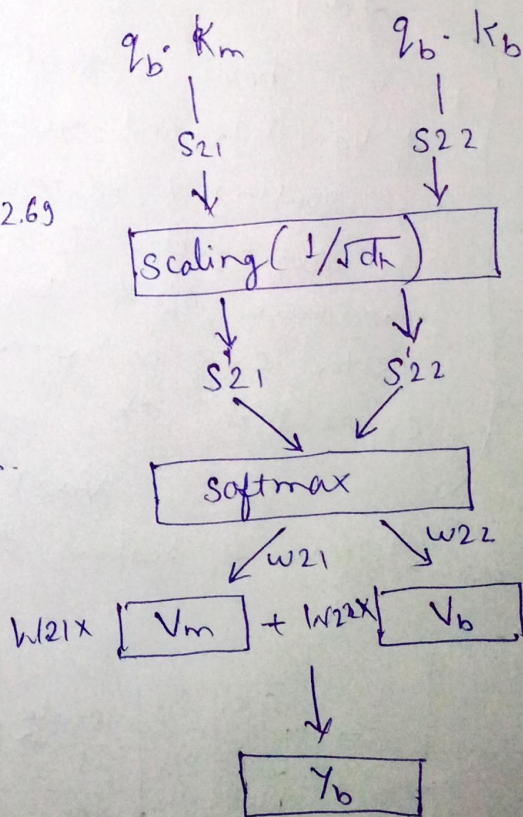 q_b · K_m q_b · K_b
S21 S22
2.69
Scaling (1/√dk)
S'21 S'22
Softmax
W21 W22
W21× V_m + W22× V_b
Y_b